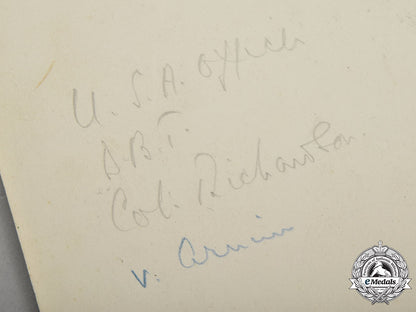 U.S.A. Office
D.B.T.
Col: Richardson.
v. Arnim
eMedals